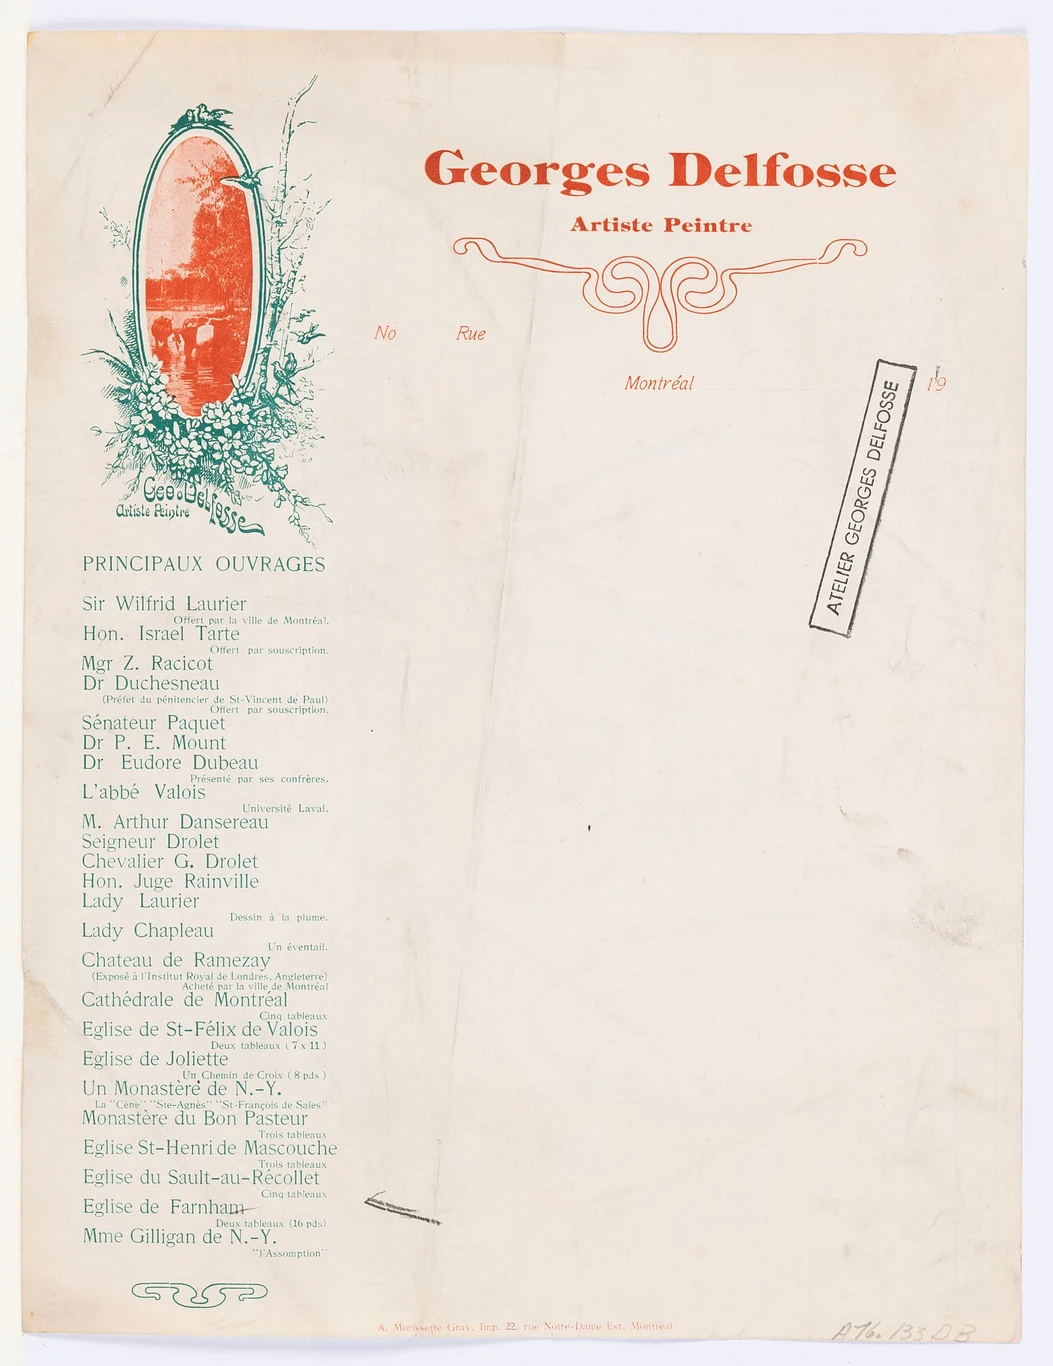 Georges Delfosse
Artiste Peintre
No Rue
Montréal 19
ATELIER GEORGES DELFOSSE
Geo. Delfosse
Artiste Peintre
PRINCIPAUX OUVRAGES
Sir Wilfrid Laurier
Offert par la ville de Montréal.
Hon. Israel Tarte
Offert par souscription.
Mgr Z. Racicot
Dr Duchesneau
(Préfet du pénitencier de St-Vincent de Paul)
Offert par souscription.
Sénateur Paquet
Dr P. E. Mount
Dr Eudore Dubeau
Présenté par ses confrères.
L'abbé Valois
Université Laval.
M. Arthur Dansereau
Seigneur Drolet
Chevalier G. Drolet
Hon. Juge Rainville
Lady Laurier
Dessin à la plume.
Lady Chapleau
Un éventail.
Chateau de Ramezay
(Exposé à l'Institut Royal de Londres, Angleterre)
Acheté par la ville de Montréal
Cathédrale de Montréal
Cinq tableaux
Eglise de St-Félix de Valois
Deux tableaux (7 x 11)
Eglise de Joliette
Un Chemin de Croix (8 pds)
Un Monastère de N.-Y.
La "Cène" "Ste-Agnès" "St-François de Sales"
Monastère du Bon Pasteur
Trois tableaux
Eglise St-Henri de Mascouche
Trois tableaux
Eglise du Sault-au-Récollet
Cinq tableaux
Eglise de Farnham
Deux tableaux (16 pds)
Mme Gilligan de N.-Y.
"l'Assomption"
A. Morissette Grav. Imp. 22, rue Notre-Dame Est, Montréal
A76. 133 D B